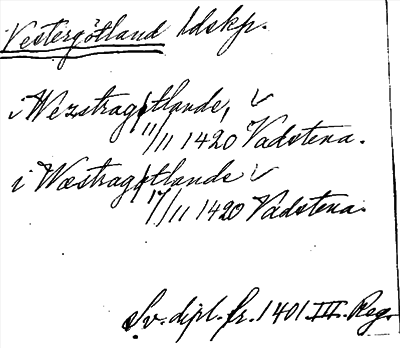 Vestergötland ldskp.
i Wezstragøtlande,
11/11 1420 Vadstena.
i Wæstragøtlande
17/11 1420 Vadstena.
Sv. dipl. fr. 1401 III. Reg.